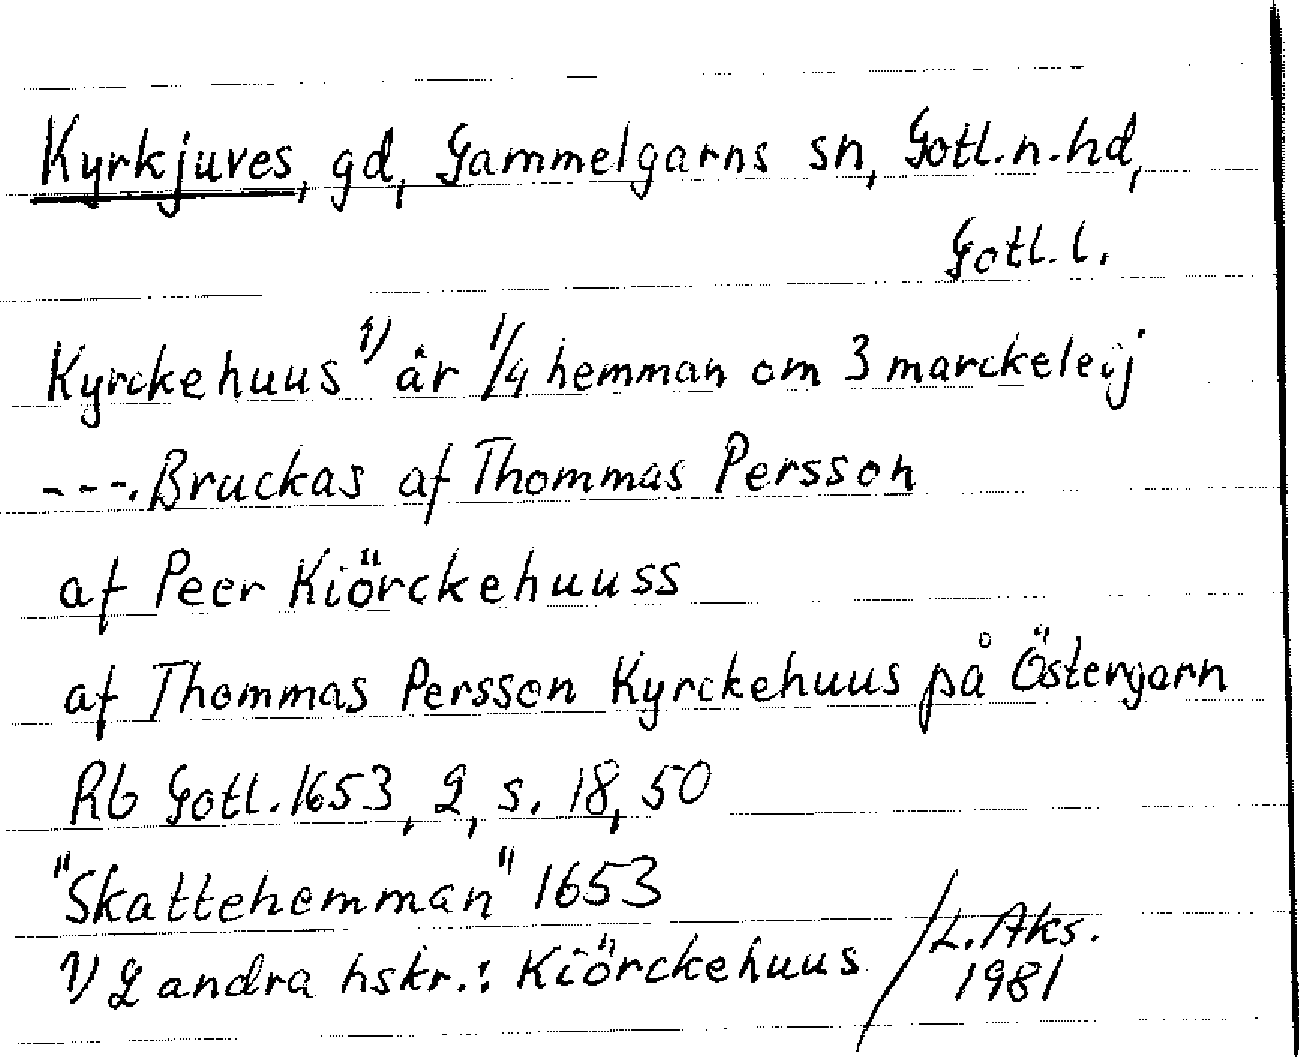 Kyrkjuves, gd, Gammelgarns sn, Gotl.n.hd,
Gotl. l.
Kyrckehuus 1) är 1/4 hemman om 3 marckeleij
---. Bruckas af Thommas Persson
af Peer Kiörckehuuss
af Thommas Persson Kyrckehuus på Östergarn
Rb Gotl. 1653, 2, s. 18, 50
"Skattehemman" 1653
1) 2 andra hskr.: Kiörckehuus /L. Aks.
1981